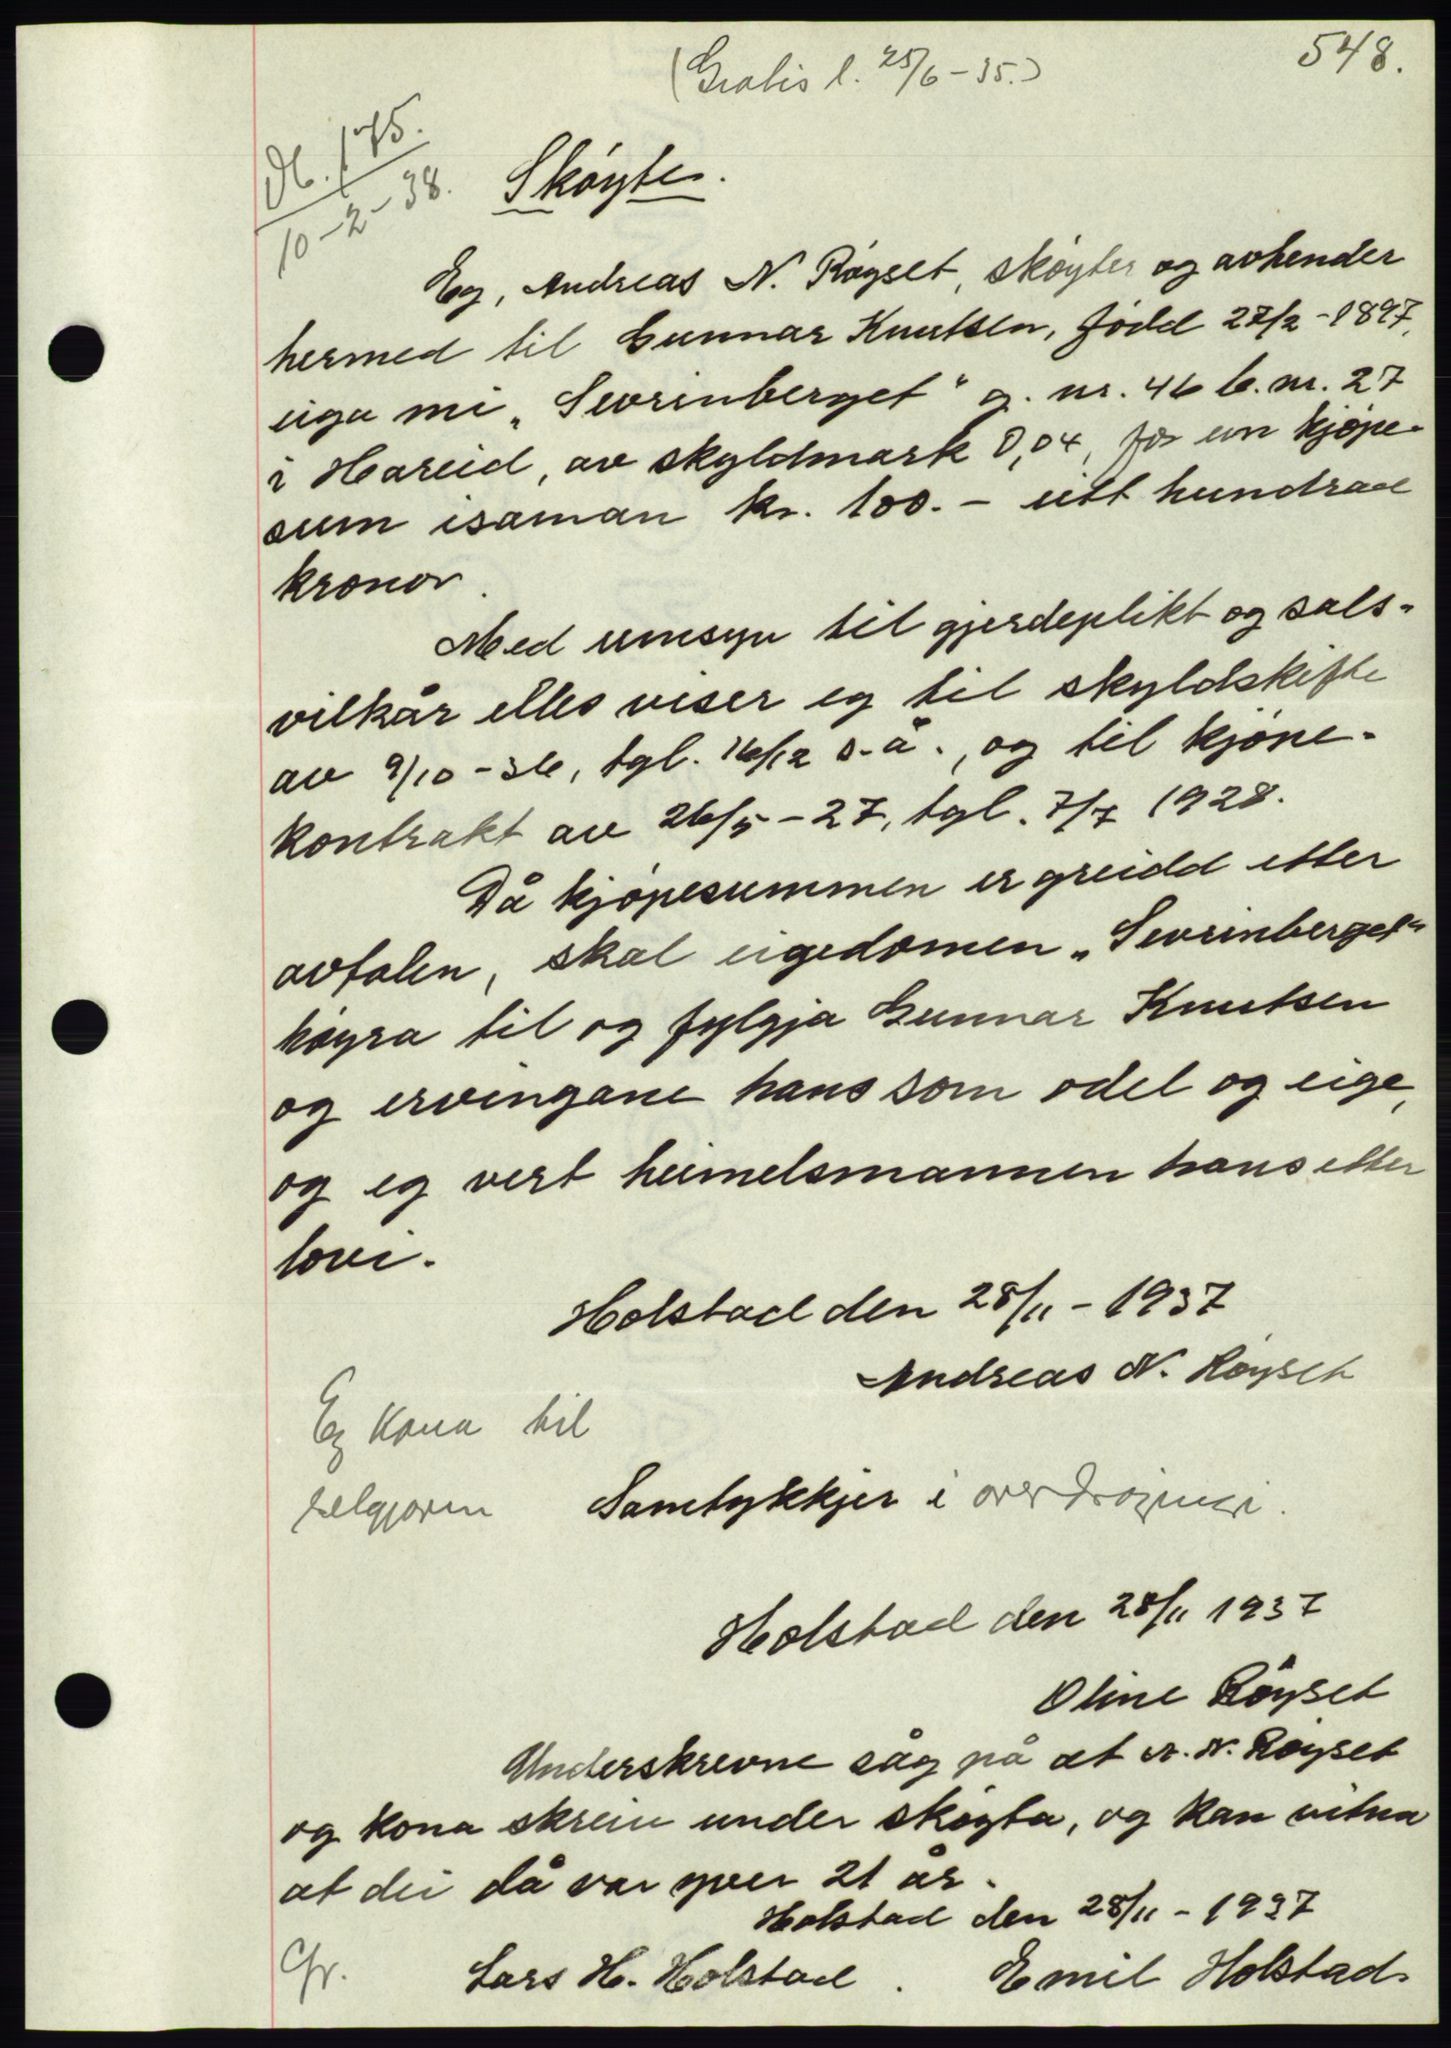 548.
(Gratis l. 25/6-35.)
Db. 175.
10-2-38.
Skøyte.
Eg, Andreas N. Røyset, skøyter og avhender
hermed til Gunnar Knutsen, fødd 27/2-1897,
eiga mi „Sevrinberget“ g. nr. 46 b. nr. 27
i Hareid, av skyldmark 0,04, for ein kjøpe-
sum isaman kr. 100.- eitt hundrad
kronor.
Med umsyn til gjerdeplikt og sals-
vilkår elles viser eg til skyldskifte
av 9/10-36, tgl. 16/12 s.å., og til kjøpe-
kontrakt av 26/5-27, tgl. 7/7 1928.
Då kjøpesummen er greidd etter
avtalen, skal eigedomen „Sevrinberget“
høyra til og fylgja Gunnar Knutsen
og ervingane hans som odel og eige,
og eg vert heimelsmannen hans etter
lovi.
Holstad den 28/11-1937
Andreas N. Røyset
Eg kona til
seljaren Samtykkjer i overdragingi.
Holstad den 28/11 1937
Oline Røyset
Underskrevne såg på at A. N. Røyset
og kona skreiv under skøyta, og kan vitna
at dei då var yver 21 år.
Holstad den 28/11-1937
Gr. Lars H. Holstad. Emil Holstad.